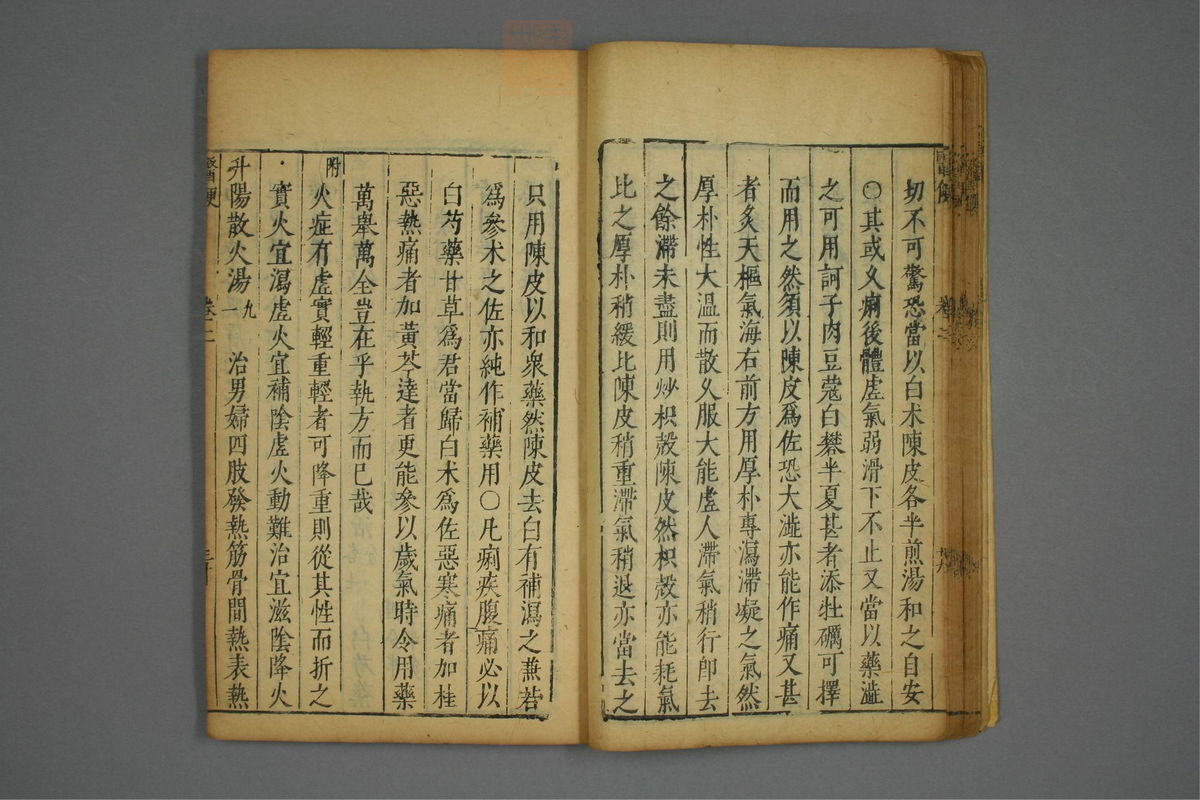 切不可驚恐當以白朮陳皮各半煎湯和之自安
○其或久痢後體虛氣弱滑下不止又當以藥澁
之可用訶子肉豆蔻白礬半夏甚者添牡礪可擇
而用之然須以陳皮爲佐恐大澁亦能作痛又甚
者炙天樞氣海右前方用厚朴專瀉滯凝之氣然
厚朴性大温而散久服大能虛人滯氣稍行卽去
之餘滯未盡則用炒枳殼陳皮然枳殼亦能耗氣
比之厚朴稍緩比陳皮稍重滯氣稍退亦當去之
只用陳皮以和衆藥然陳皮去白有補瀉之兼若
爲參朮之佐亦純作補藥用○凡痢疾腹痛必以
白芍藥甘草爲君當歸白朮爲佐惡寒痛者加桂
惡熱痛者加黃芩達者更能參以歲氣時令用藥
萬舉萬全豈在乎執方而已哉
附 火症有虛實輕重輕者可降重則從其性而折之
實火宜瀉虛火宜補陰虛火動難治宜滋陰降火
升陽散火湯 九一 治男婦四肢發熱筋骨間熱表熱
醫便 卷二 三十